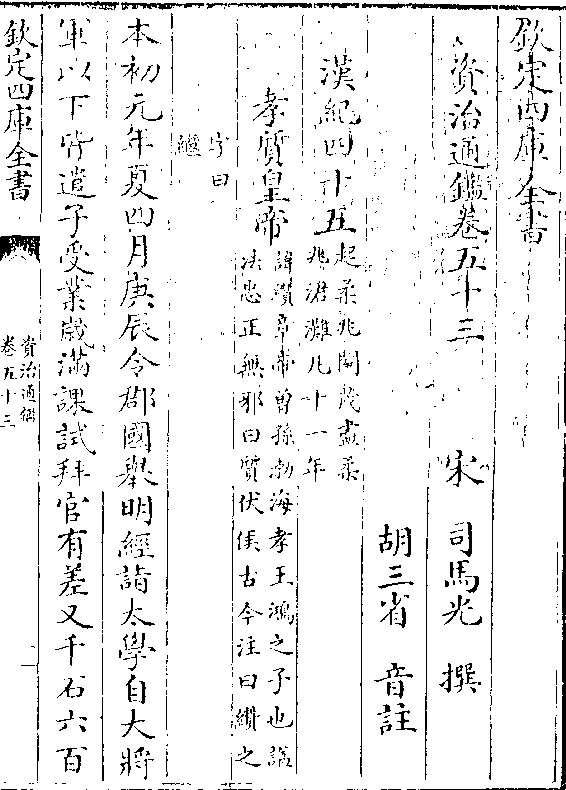 欽定四庫全書
資治通鑑卷五十三
宋 司馬光 撰
胡三省 音註
漢紀四十五起柔兆閹茂盡柔
兆涒灘凡十一年
孝質皇帝諱纘章帝曾孫勃海孝王鴻之子也諡
法忠正無邪曰質伏侯古今注曰纘之
字曰
繼
本初元年夏四月庚辰令郡國舉明經詣太學自大將
軍以下皆遣子受業歲滿課試拜官有差又千石六百
欽定四庫全書
資治通鑑
卷五十三
一